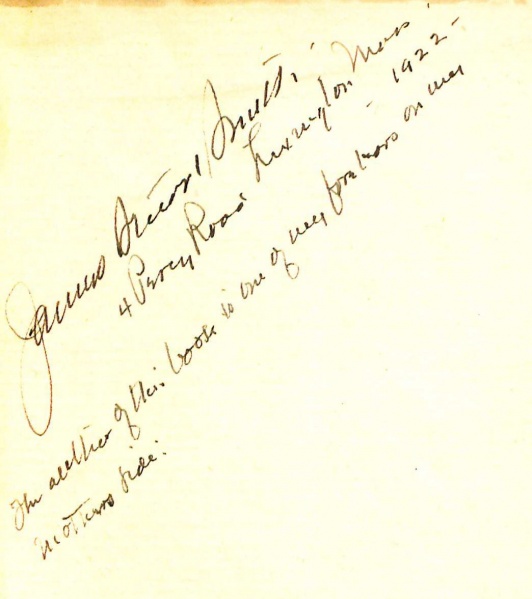 James Stuart Smith.
4 Percy Road Lexington Mass.
- 1922 -
The author of this book is one of my forebears on my
mothers side.